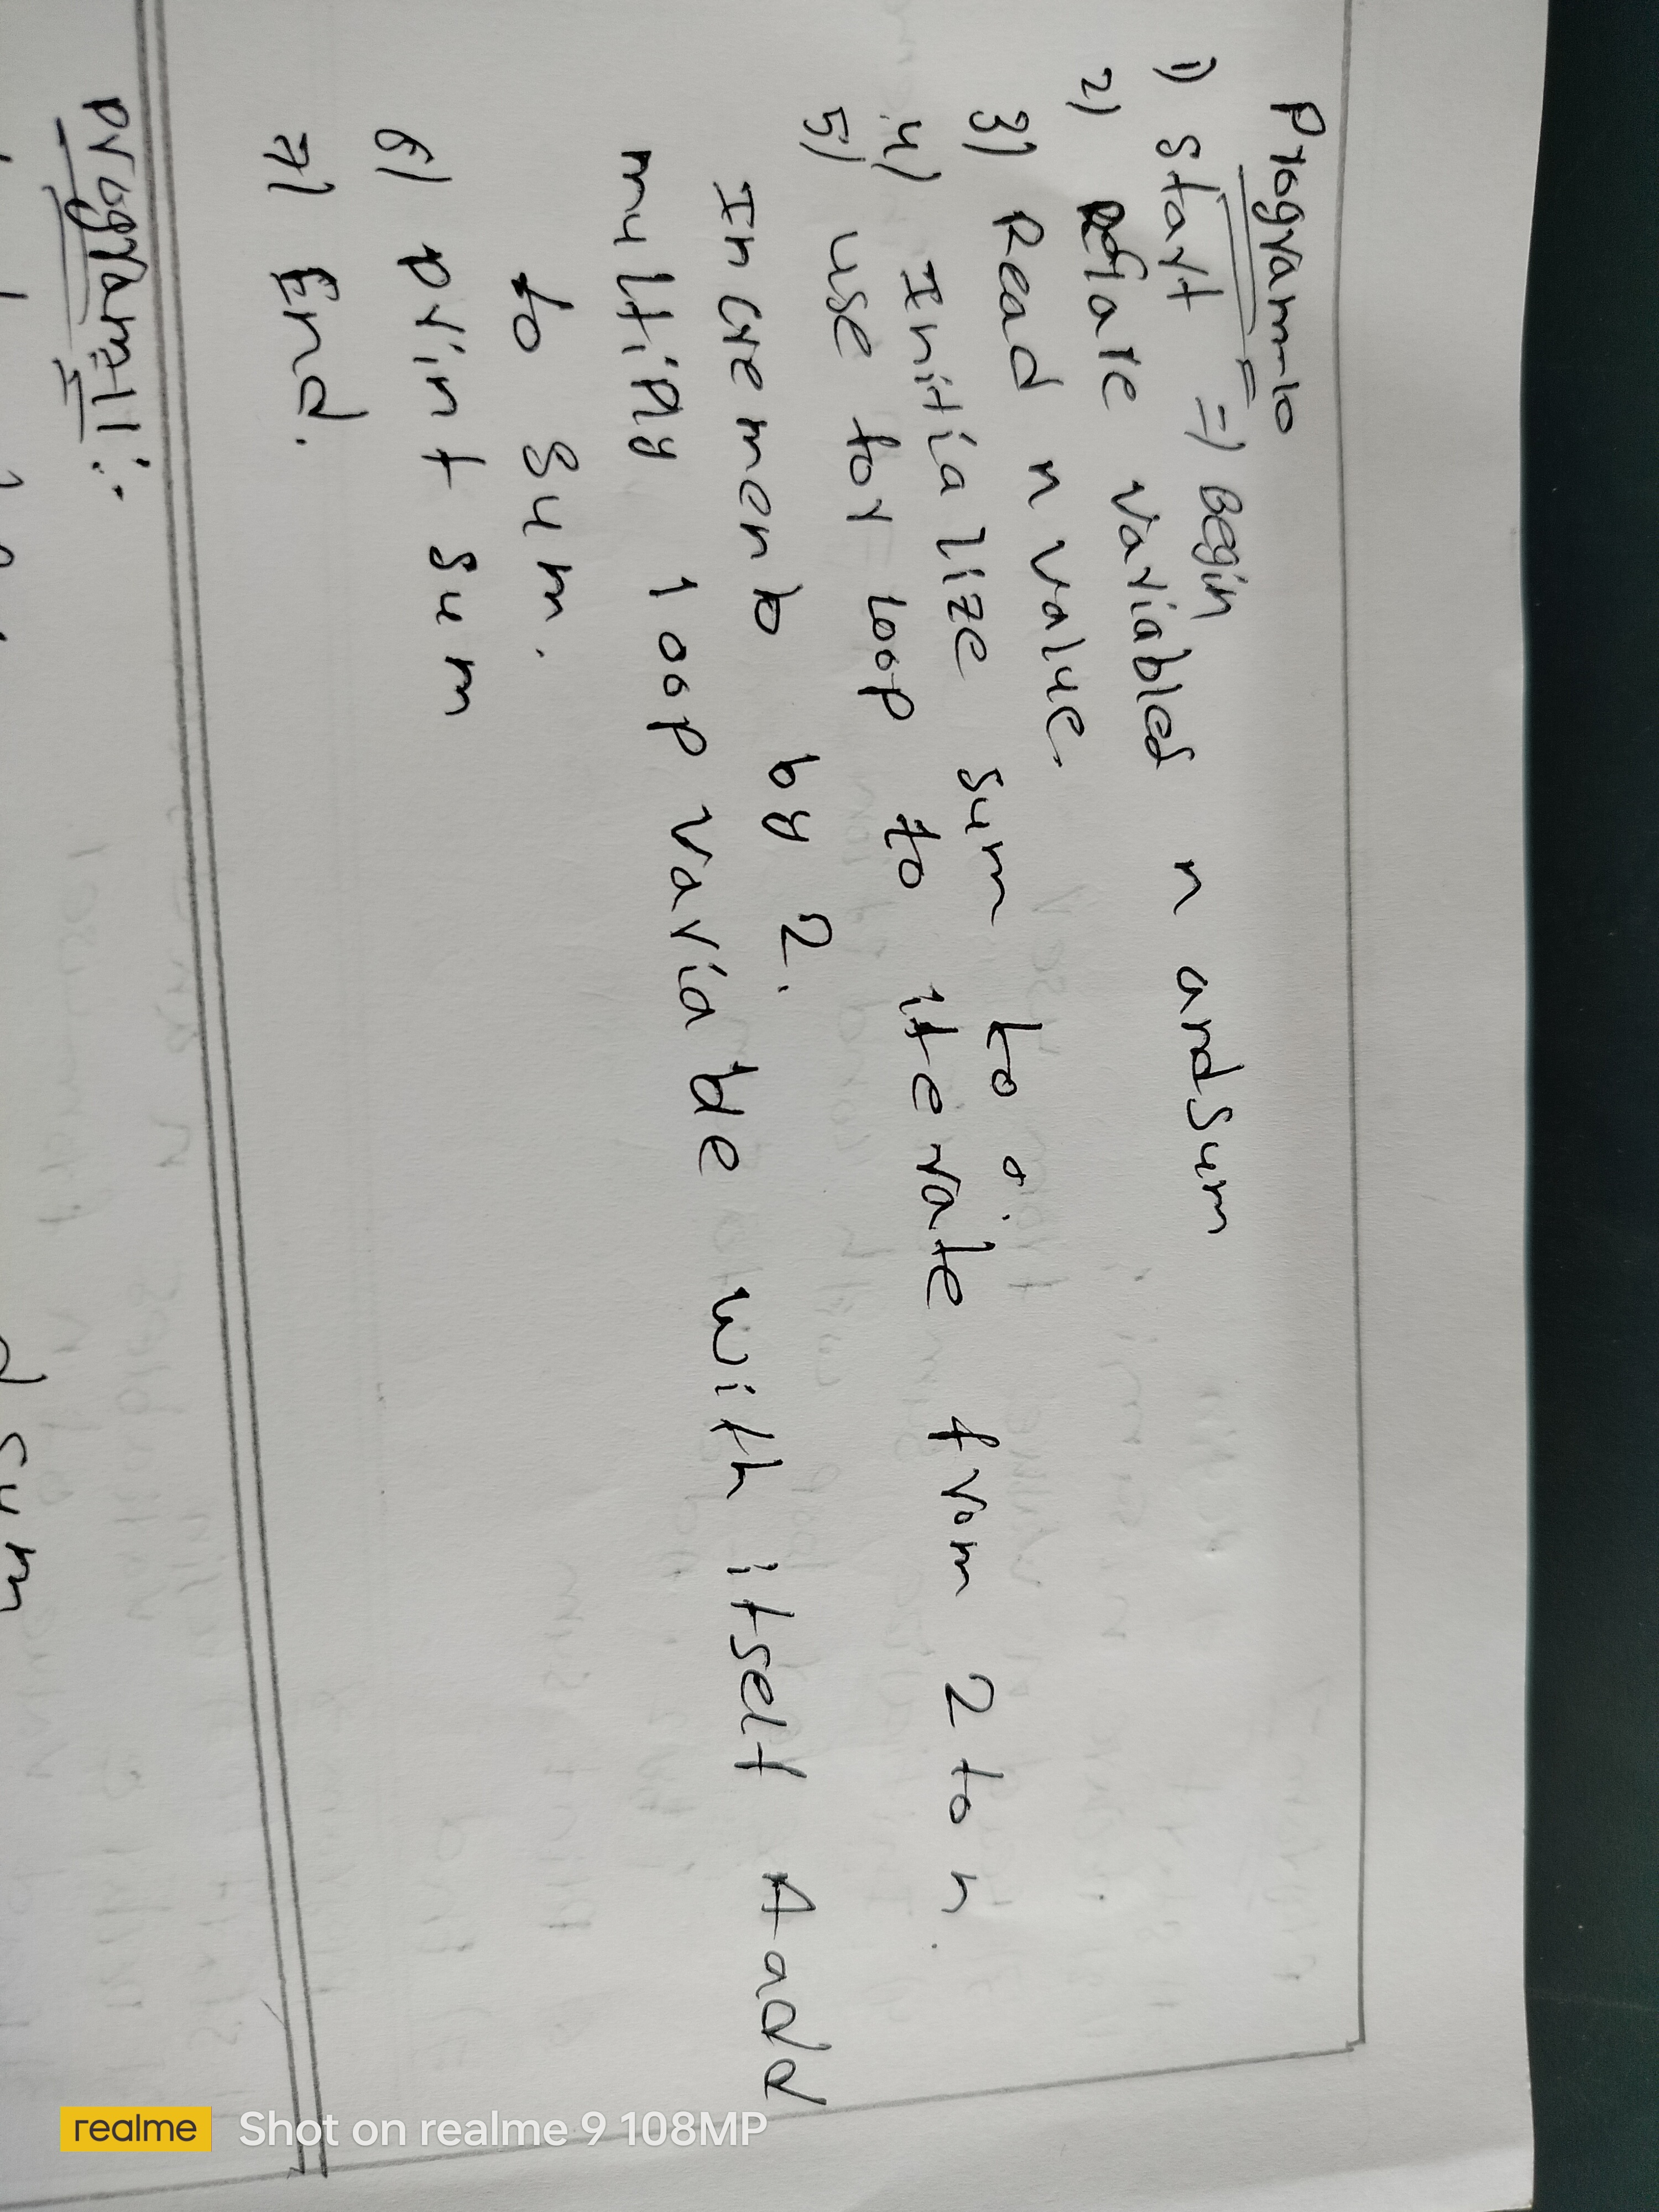 Program-10
1) Start => Begin
2) variables n and sum
3) Read n value.
4) Initialize sum to 0.
5) use for loop to iterate from 2 to n.
Increment by 2.
multiply loop variable with itself Add
to sum.
6) print sum
7) End.
Program-11:
sum
realme Shot on realme 9 108MP